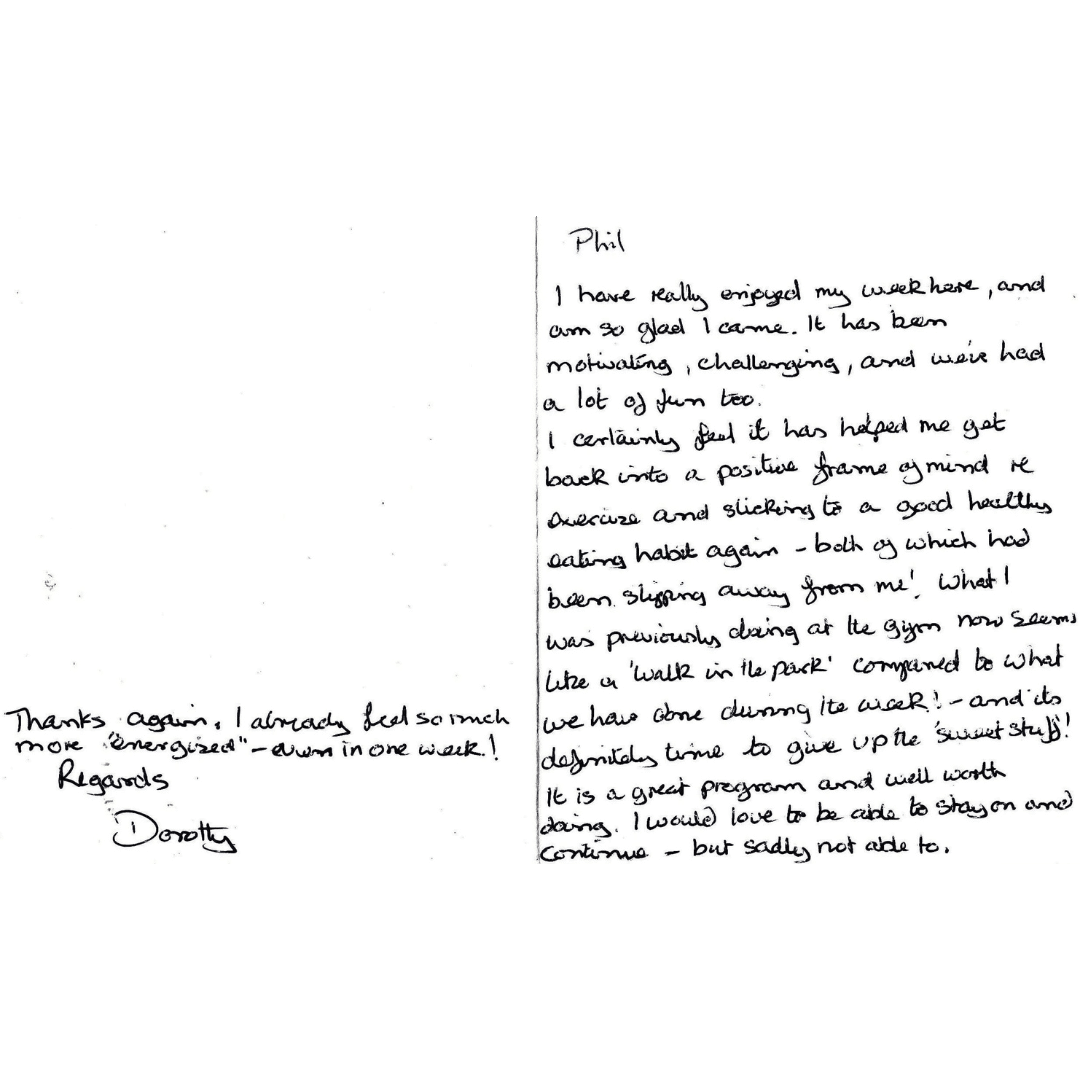 Phil
I have really enjoyed my week here, and
am so glad I came. It has been
motivating, challenging, and we've had
a lot of fun too.
I certainly feel it has helped me get
back into a positive frame of mind re
exercise and sticking to a good healthy
eating habit again - both of which had
been slipping away from me! What I
was previously doing at the gym now seems
like a 'walk in the park' compared to what
we have done during the week! - and its
definitely time to give up the 'sweet stuff'!
It is a great program and well worth
doing. I would love to be able to stay on and
continue - but sadly not able to.
Thanks again, I already feel so much
more "energized" - even in one week!
Regards
Dorothy